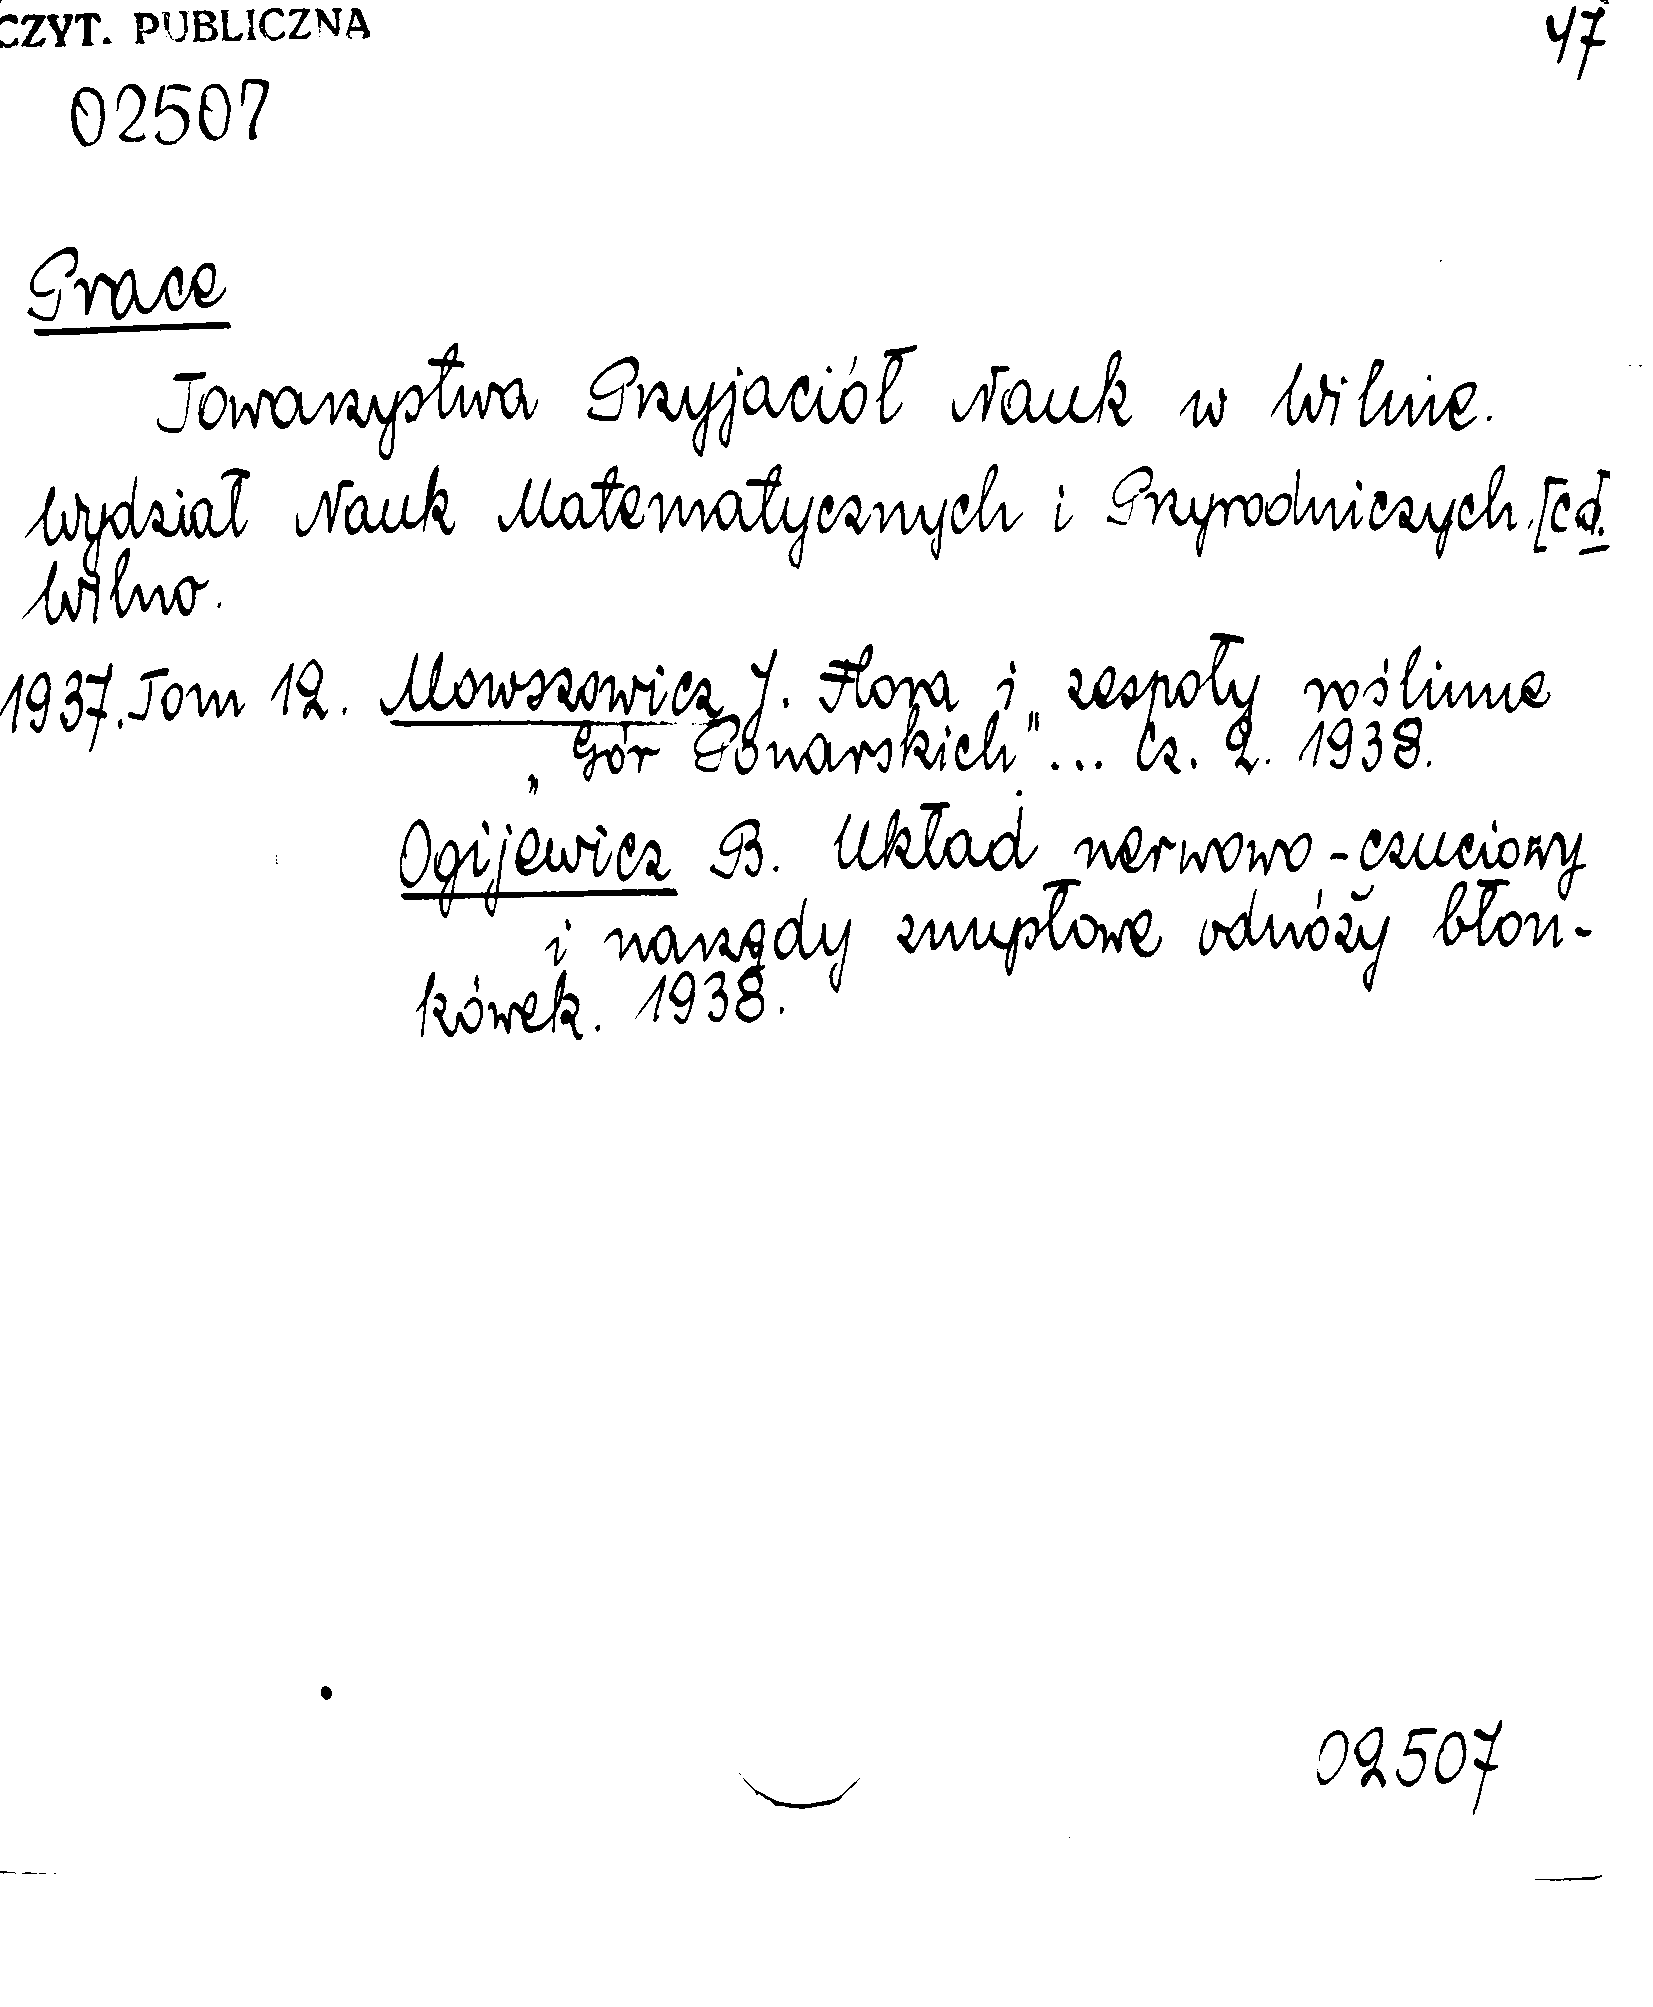 CZYT. PUBLICZNA
47
02507
Prace
Towarzystwa Przyjaciół Nauk w Wilnie.
Wydział Nauk Matematycznych i Przyrodniczych. [cd.
Wilno.
1937. Tom 12. Mowszowicz J. Flora i zespoły roślinne
„Gór Ponarskich"... Cz. 2. 1938.
Ogijewicz B. Układ nerwowo-czuciowy
i narzędy zmysłowe odnóży błon-
kówek. 1938.
02507